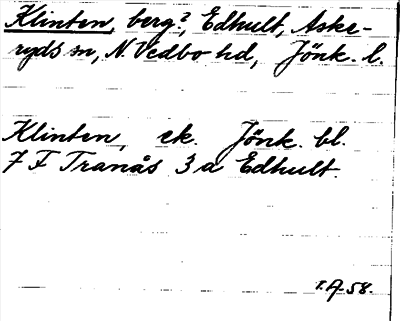 Klinten, berg?, Edhult, Aske-
ryds sn, N. Vedbo hd, Jönk. l.
Klinten, ek. Jönk. bl.
7 F Tranås 3 a Edhult.
I.A-58.